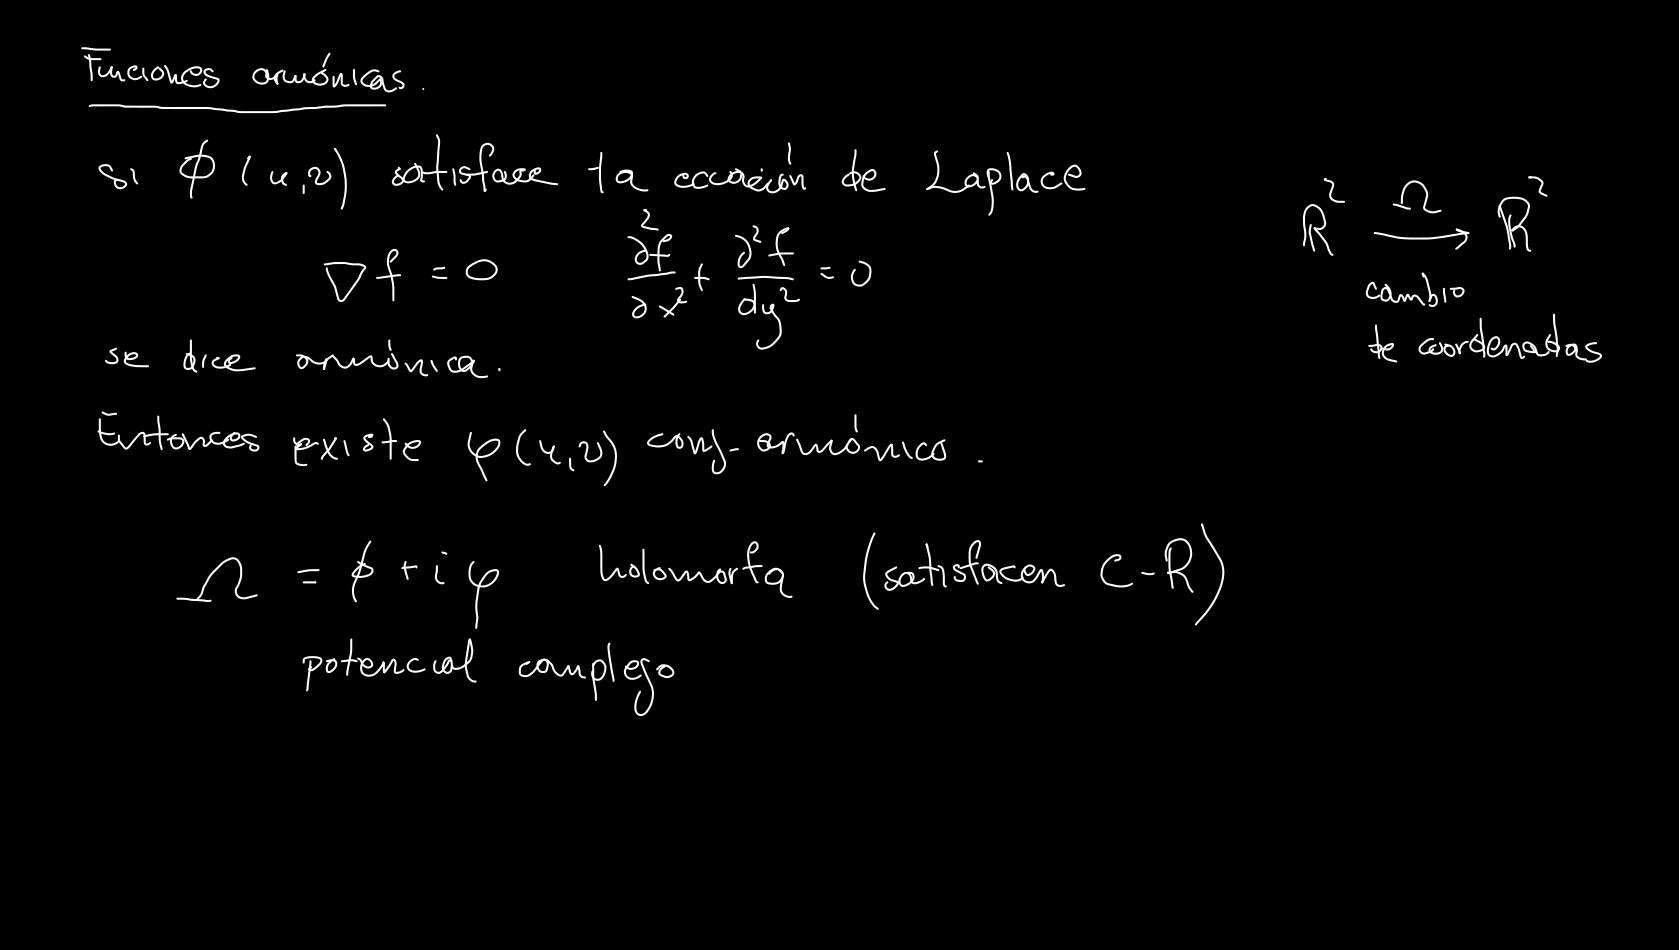 Funciones armónicas.
si ϕ(u,v) satisface la ecuación de Laplace
∇f = 0 ∂²f/∂x² + ∂²f/dy² = 0
se dice armónica.
Entonces existe φ(u,v) conj-armónico.
Ω = ϕ + iφ holomorfa (satisfacen C-R)
potencial complejo
R² Ω→ R²
cambio
de coordenadas